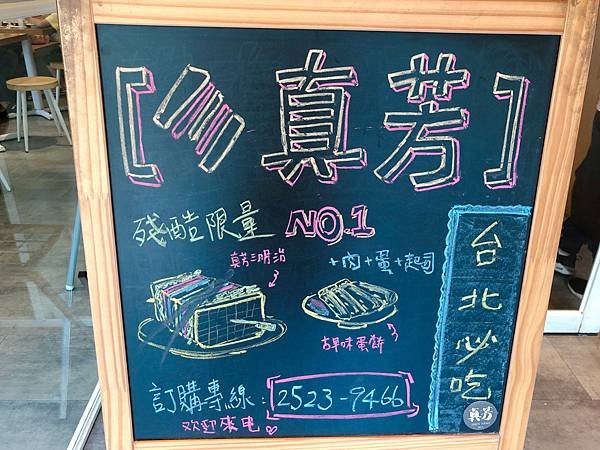 [真芳]
殘酷限量 NO.1
真芳三明治
+肉+蛋+起司
古早味蛋餅
台北必吃
訂購專線：2523-9466
欢迎來电
真芳